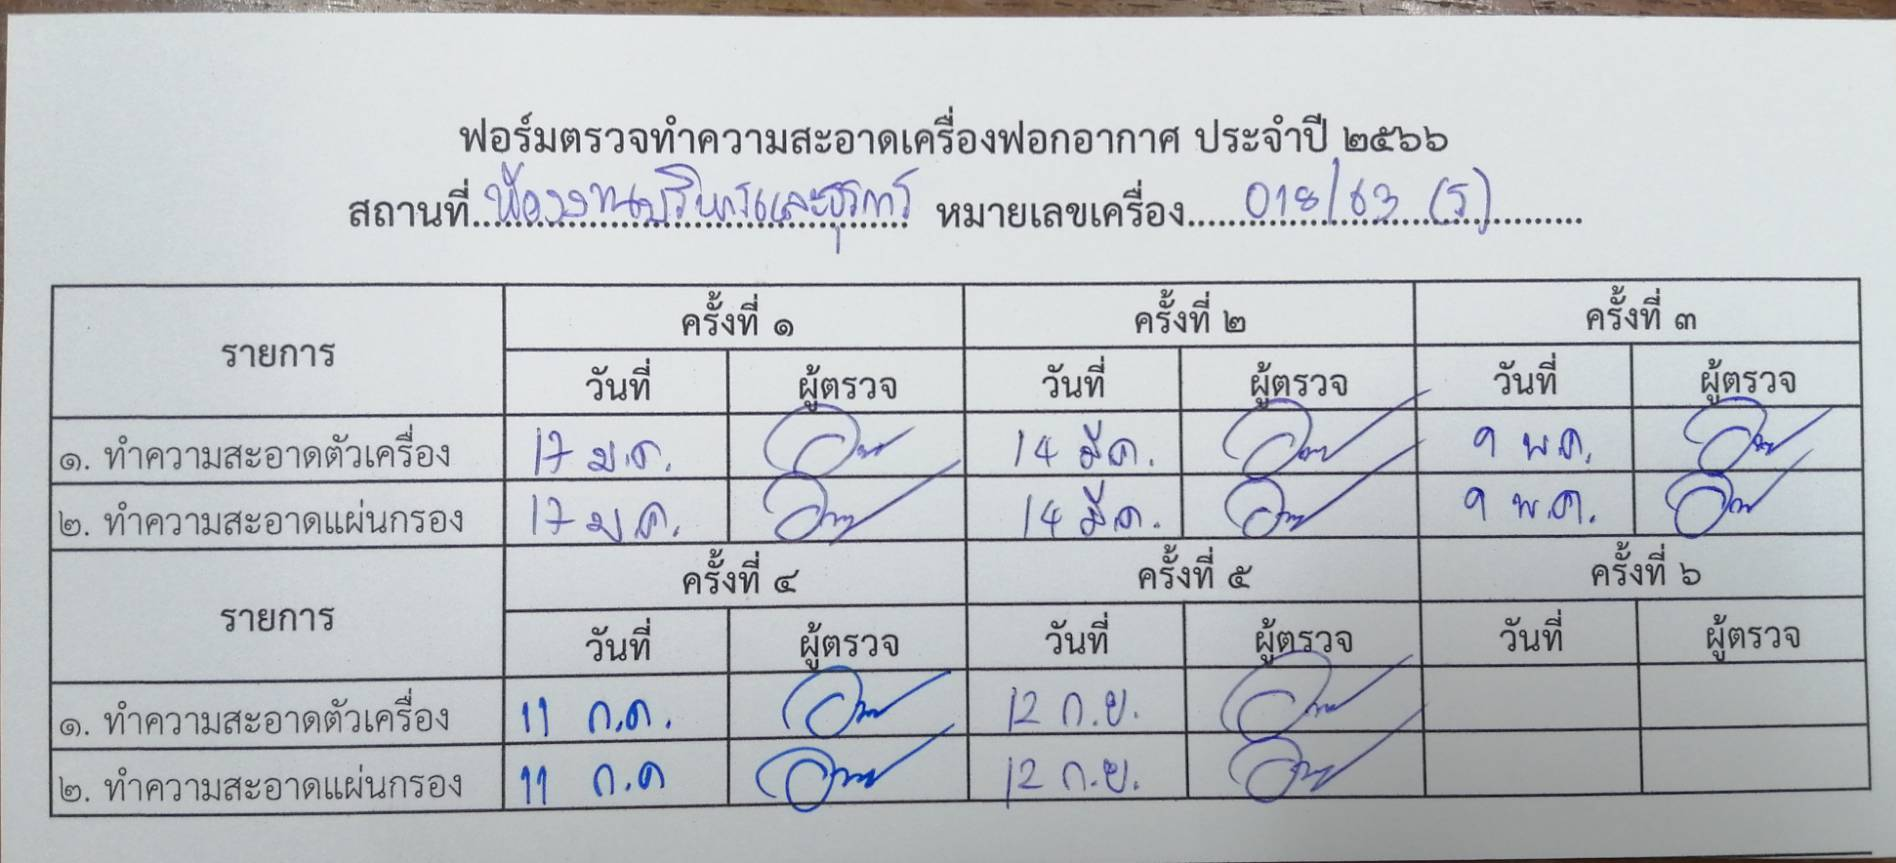 ฟอร์มตรวจทำความสะอาดเครื่องฟอกอากาศ ประจำปี ๒๕๖๖
สถานที่..ห้องงานบริหารและธุรการ หมายเลขเครื่อง.....018/63 (ร)
รายการ ครั้งที่ ๑ ครั้งที่ ๒ ครั้งที่ ๓
วันที่ ผู้ตรวจ วันที่ ผู้ตรวจ วันที่ ผู้ตรวจ
๑. ทำความสะอาดตัวเครื่อง 17 ม.ค. 14 มีค. 9 พ.ค.
๒. ทำความสะอาดแผ่นกรอง 17 ม.ค. 14 มี.ค. 9 พ.ค.
รายการ ครั้งที่ ๔ ครั้งที่ ๕ ครั้งที่ ๖
วันที่ ผู้ตรวจ วันที่ ผู้ตรวจ วันที่ ผู้ตรวจ
๑. ทำความสะอาดตัวเครื่อง 11 ก.ค. 12 ก.ย.
๒. ทำความสะอาดแผ่นกรอง 11 ก.ค 12 ก.ย.